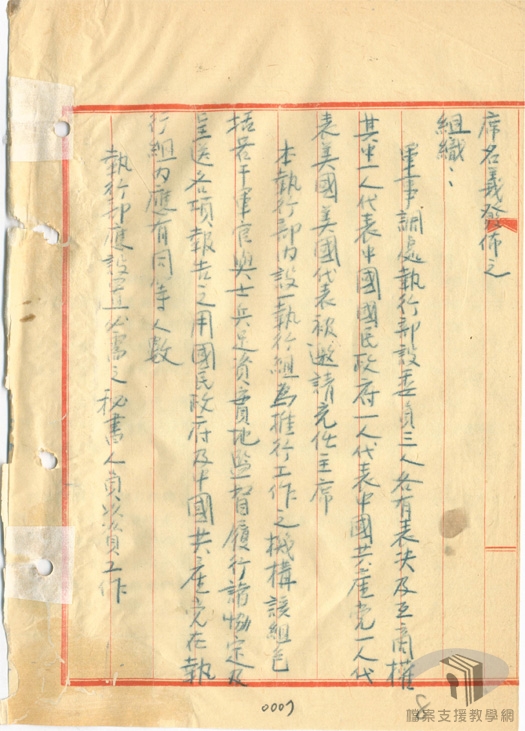 席名義發佈之
組織：
軍事調處執行部設委員三人各有表決及互商權
其中一人代表中國國民政府一人代表中國共產党一人代
表美國美國代表被邀請充任主席
本執行部內設一執行組為推行工作之機構該組包
括若干軍官與士兵足資實地監督履行諸協定及
呈送各項報告之用國民政府及中國共產党在執
行組內應有同等人數
執行部應設置必需之秘書人員以資工作
8
0007
檔案支援教學網